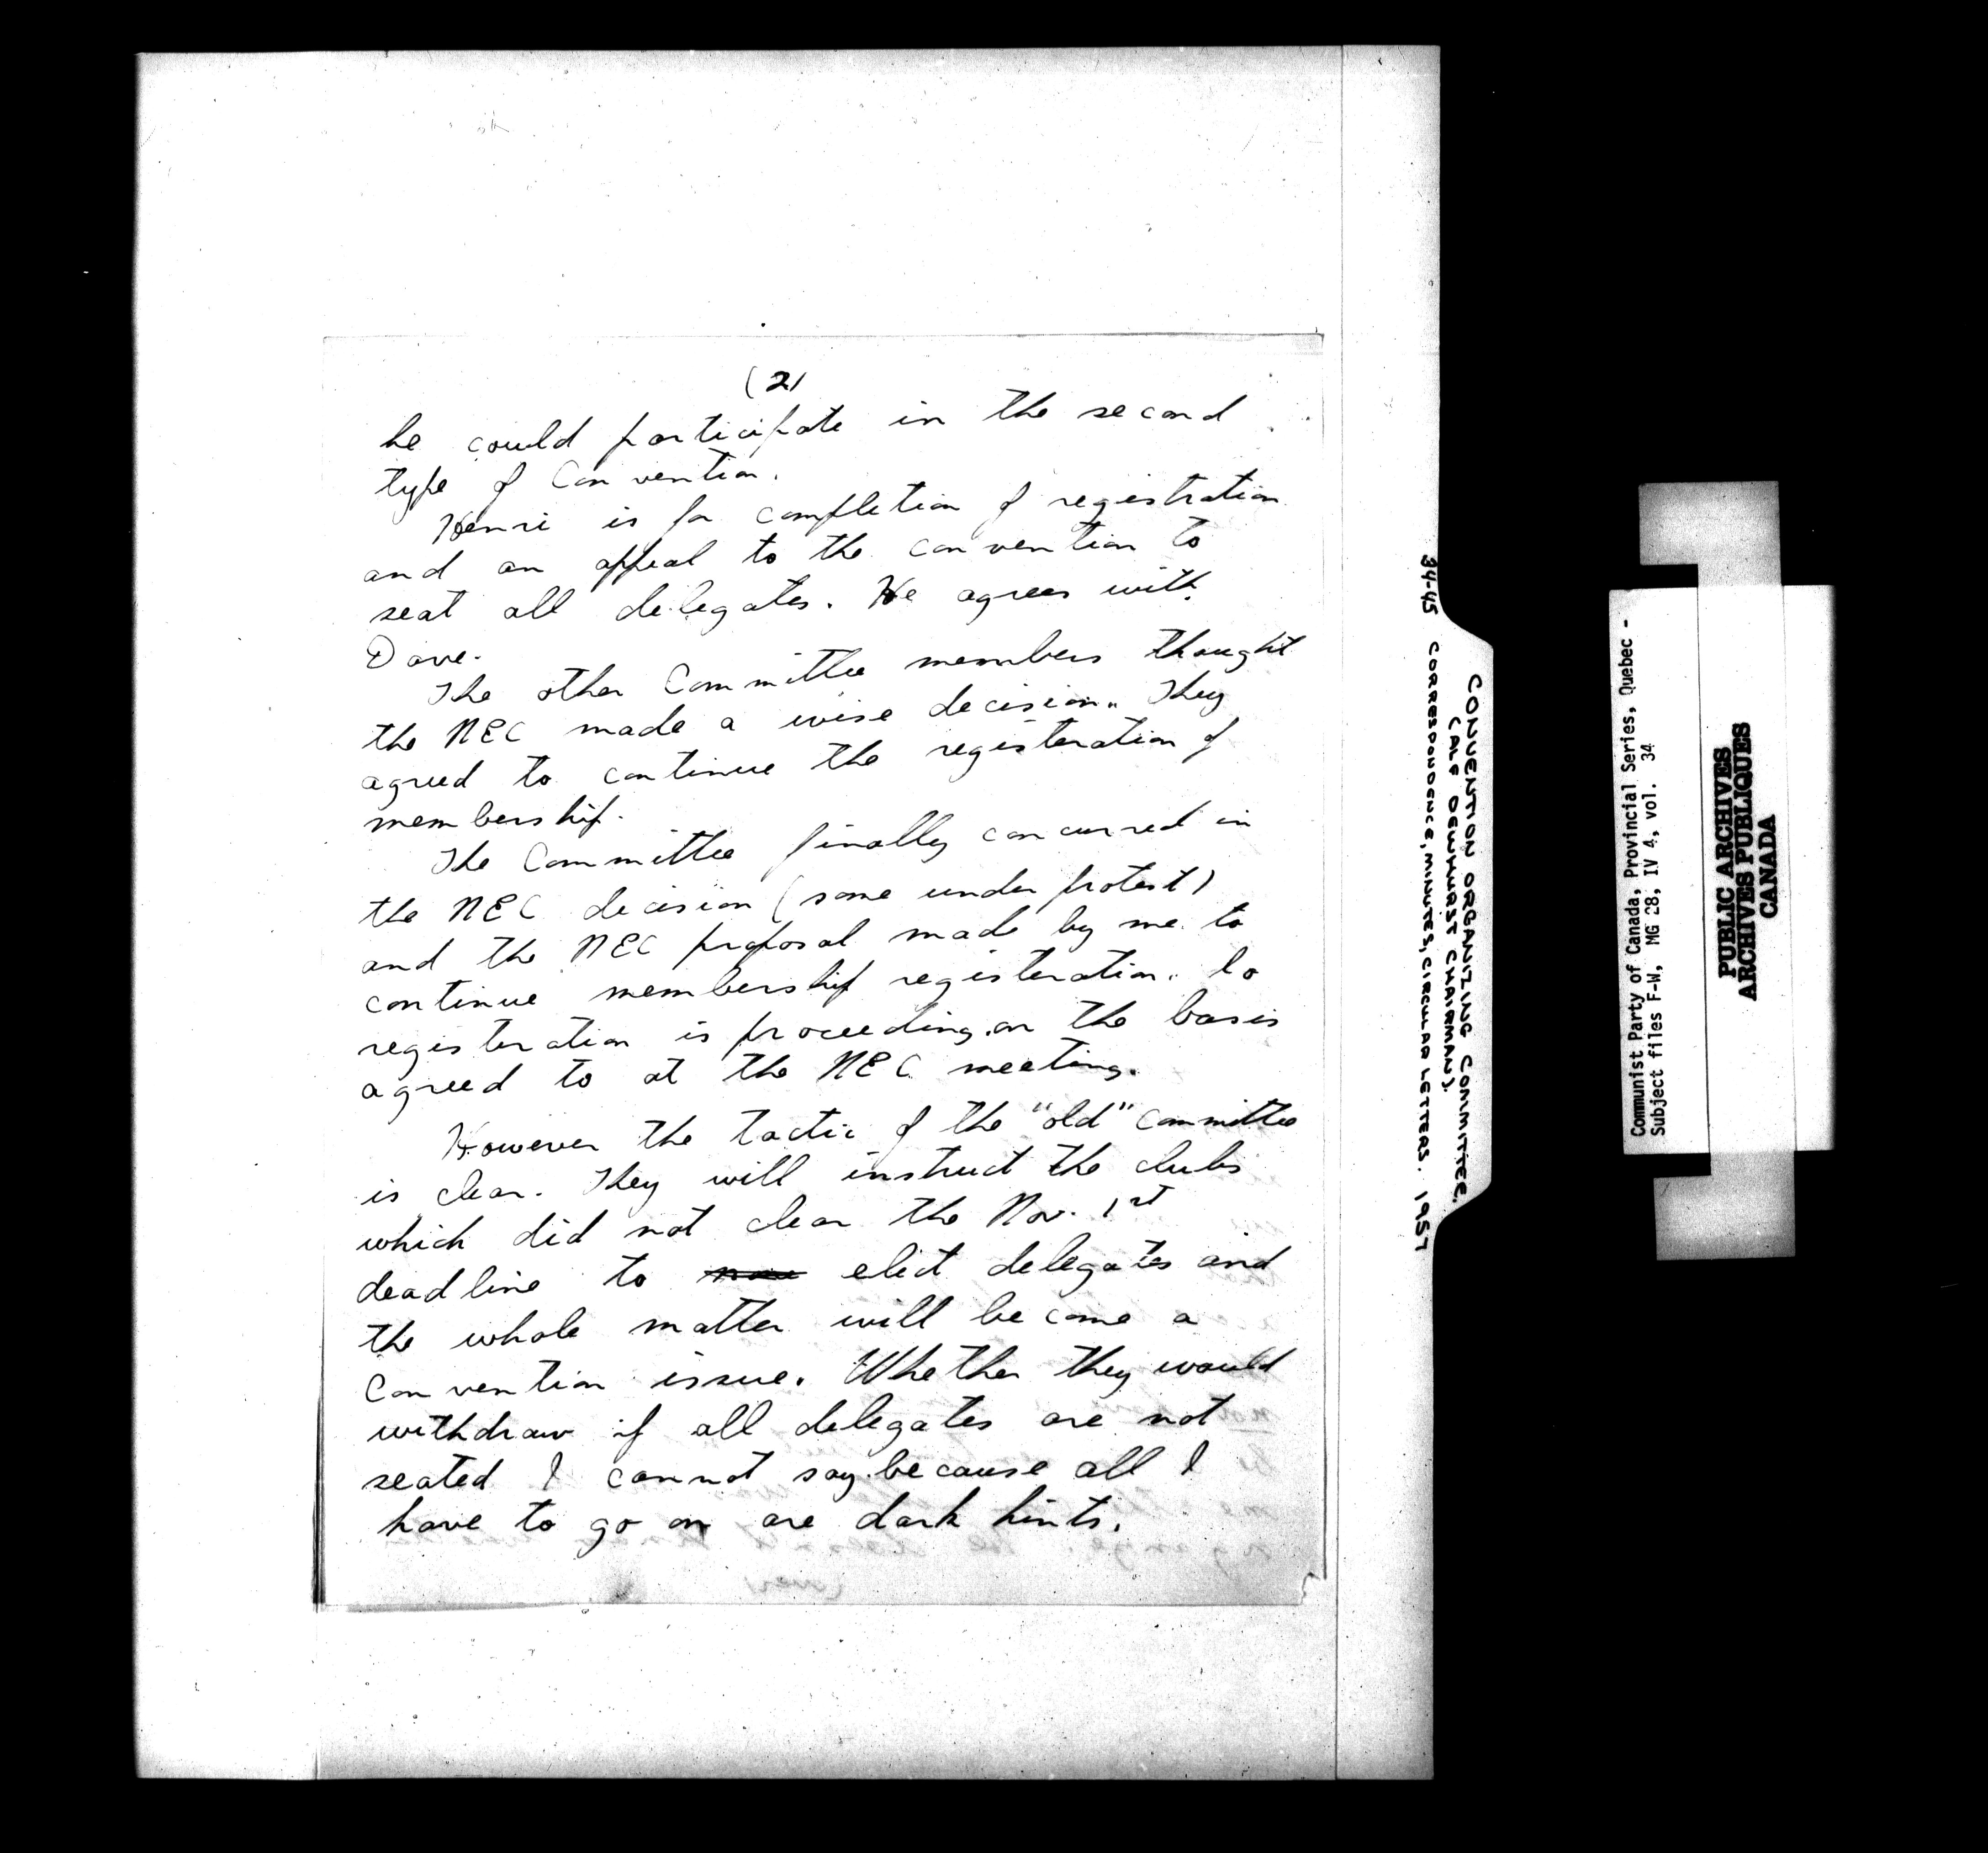 (2)
he could participate in the second
type of Convention.
Henri is for completion of registration
and an appeal to the convention to
seat all delegates. He agrees with
Dave.
The other Committee members thought
the NEC made a wise decision. They
agreed to continue the registeration of
membership.
The Committee finally concurred in
the NEC decision (some under protest)
and the NEC proposal made by me to
continue membership registeration. So
registeration is proceeding on the basis
agreed to at the NEC meeting.
However the tactic of the "old" committee
is clear. They will instruct the clubs
which did not clear the Nov. 1st
deadline to elect delegates and
the whole matter will become a
Convention issue. Whether they would
withdraw if all delegates are not
seated I cannot say because all I
have to go on are dark hints.
CONVENTION ORGANIZING COMMITTEE.
(ALF DEWHURST CHAIRMAN).
34-45 CORRESPONDENCE, MINUTES, CIRCULAR LETTERS. 1957
Communist Party of Canada. Provincial Series, Quebec -
Subject files F-W, MG 28, IV 4, vol. 34
PUBLIC ARCHIVES
ARCHIVES PUBLIQUES
CANADA